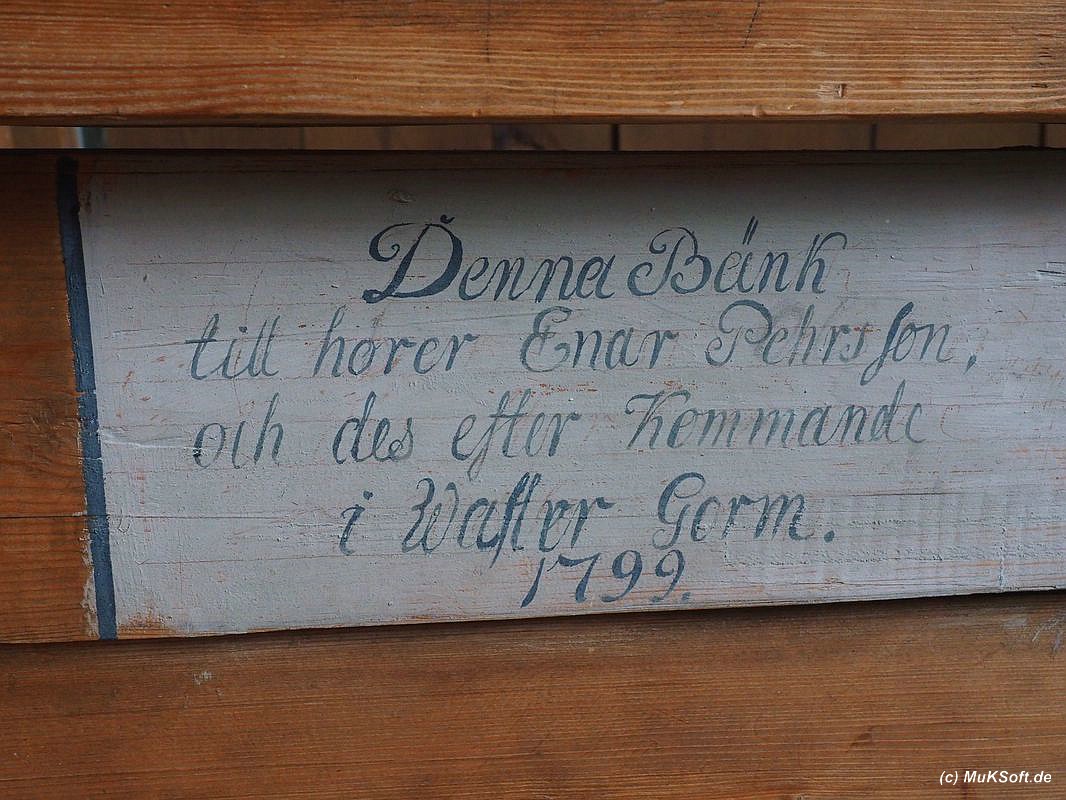 Denna Bänk
till hörer Enar Pehrsson,
och des efter Kommande
i Waster Gerrm.
1799.
(c) MuKSoft.de